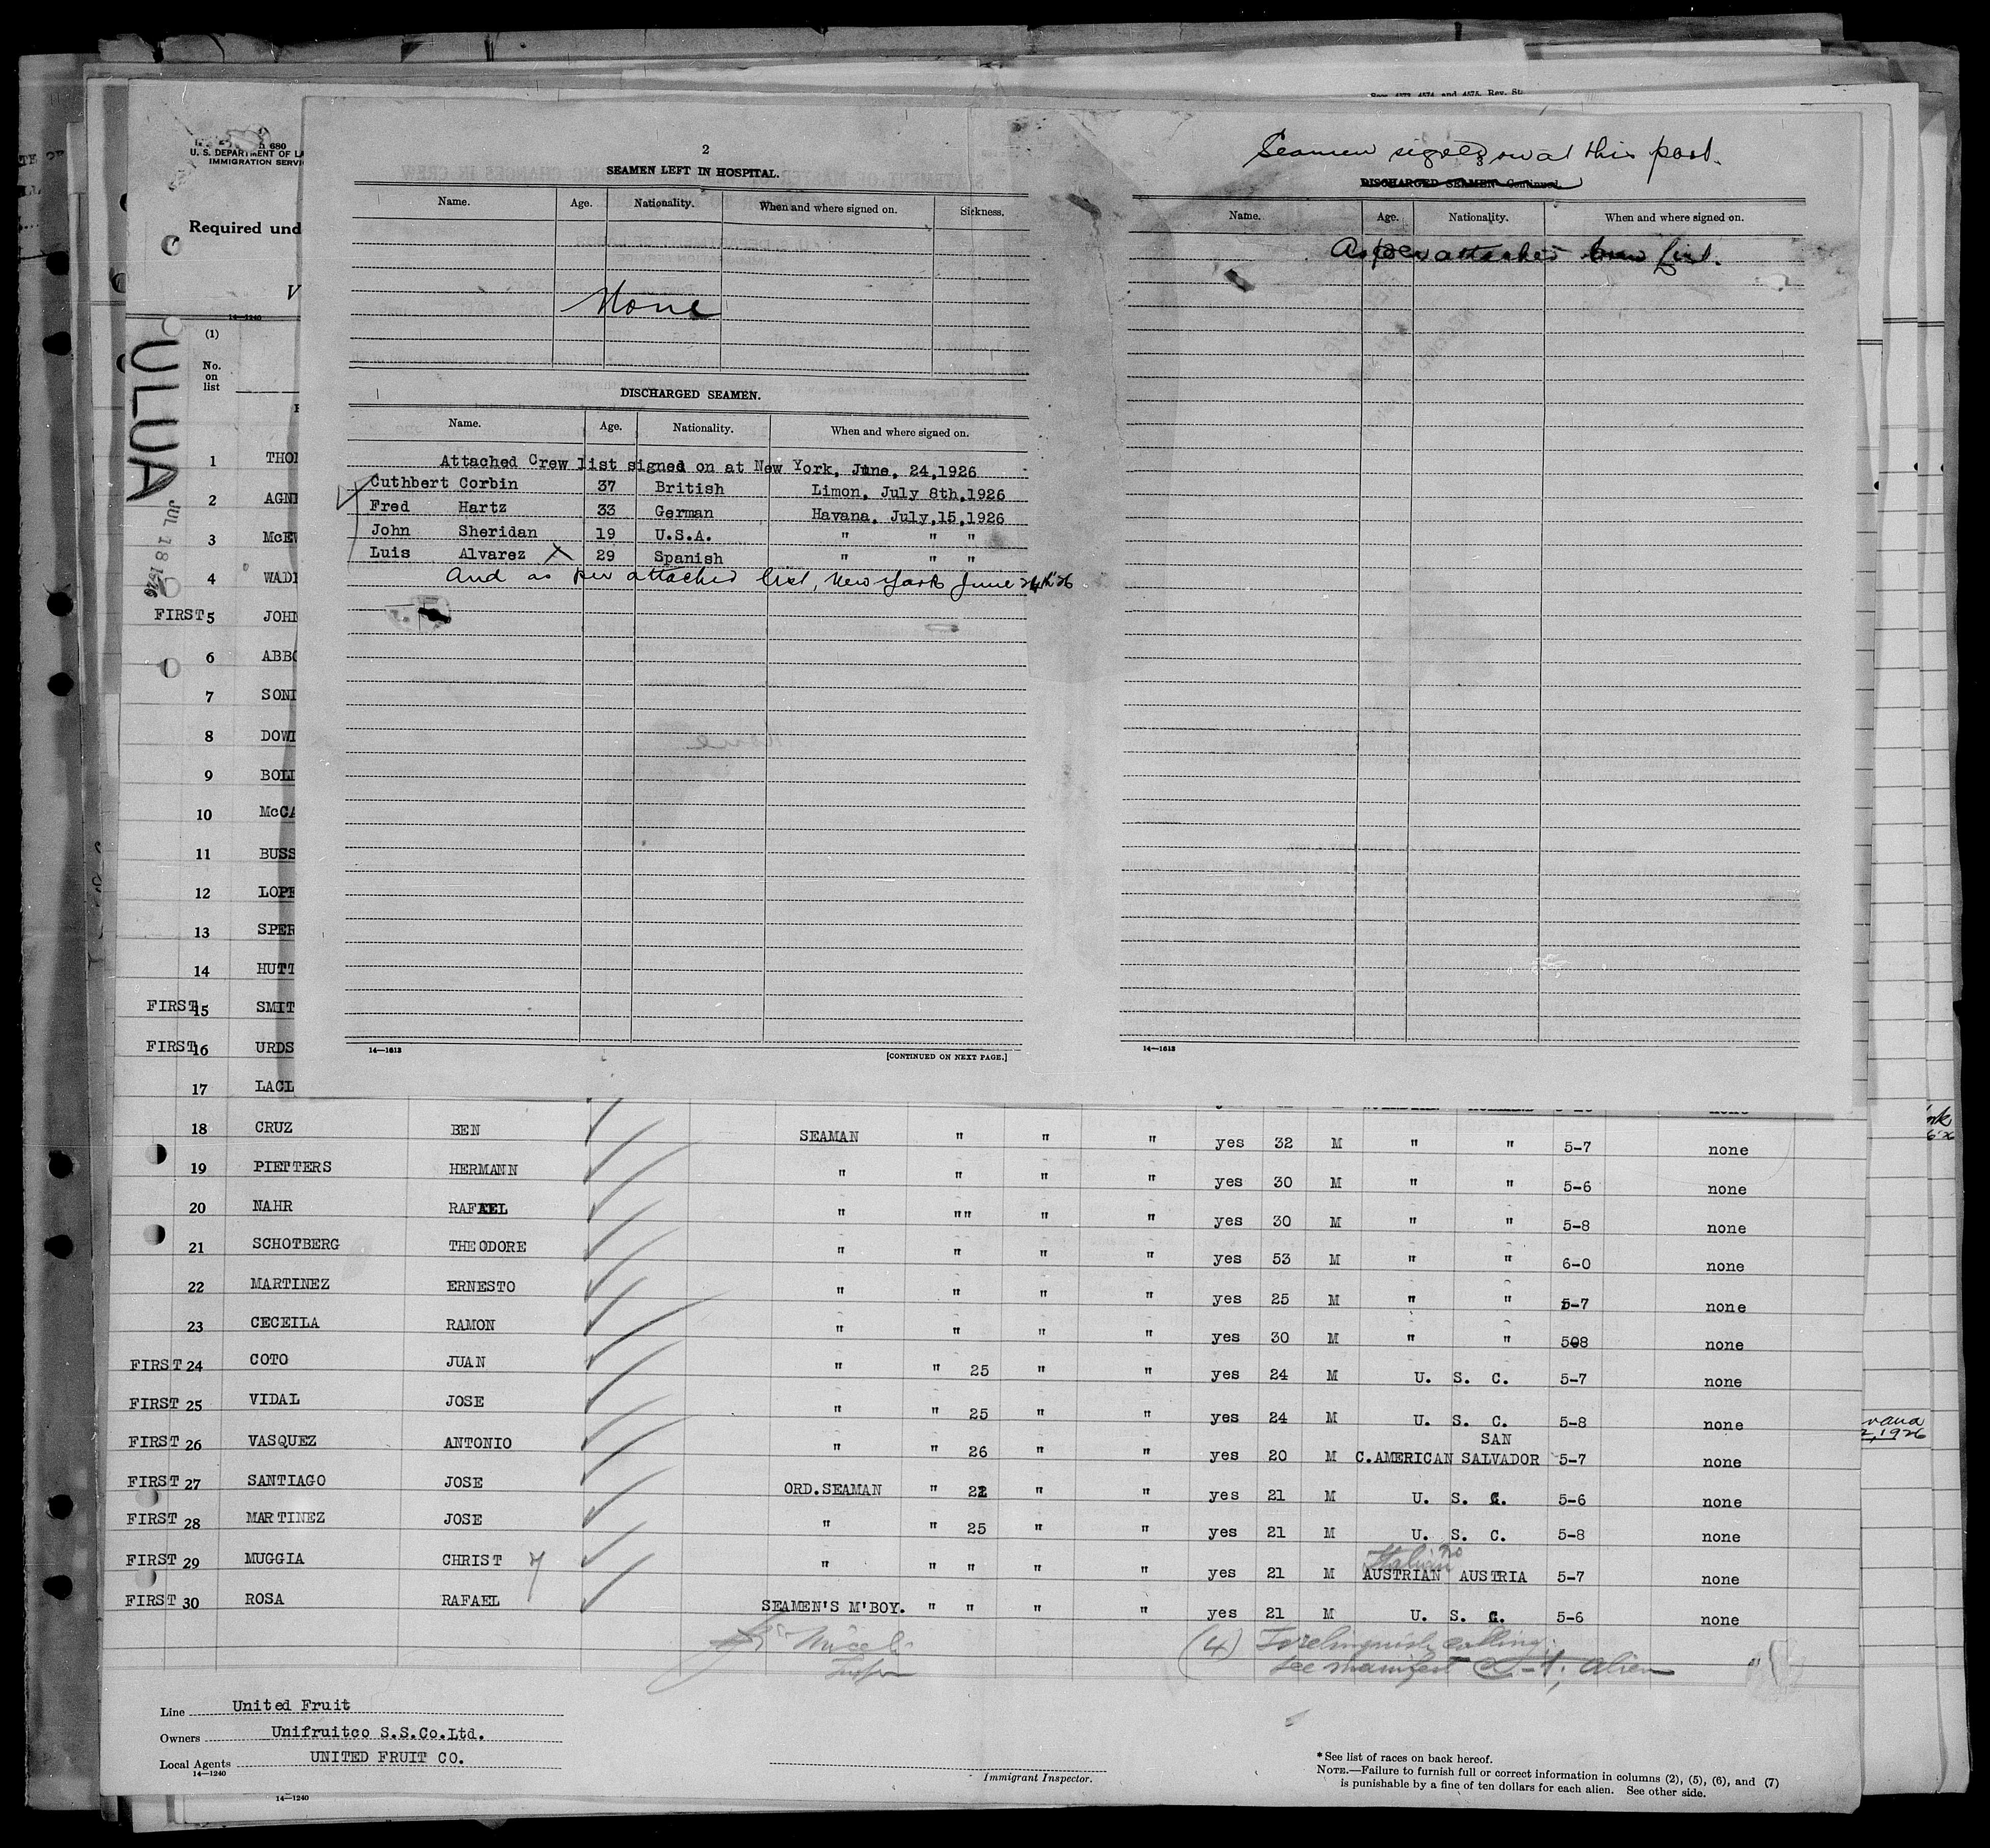 Secs. 4573, 4574, and 4575, Rev. St.
680
U. S. DEPARTMENT OF LA
IMMIGRATION SERVI
Required und
V
14—1240
(1)
No.
on
list
ULUA
JUL 18 1926
1 THO
2 AGN
3 McE
4 WAD
FIRST 5 JOH
6 ABBO
7 SON
8 DOW
9 BOL
10 McCA
11 BUSS
12 LOPE
13 SPER
14 HUTT
FIRST 15 SMIT
FIRST 16 URDS
17 LACL
2
SEAMEN LEFT IN HOSPITAL.
Name. Age. Nationality. When and where signed on. Sickness.
None
DISCHARGED SEAMEN.
Name. Age. Nationality. When and where signed on.
Attached Crew list signed on at New York, June, 24,1926
Cuthbert Corbin 37 British Limon, July 8th,1926
Fred Hartz 33 German Havana, July,15,1926
John Sheridan 19 U.S.A. " " "
Luis Alvarez X 29 Spanish " " "
And as per attached list, New York June 24th '26
14—1613
[CONTINUED ON NEXT PAGE.]
Seamen signed on at this port.
DISCHARGED SEAMEN—Continued
Name. Age. Nationality. When and where signed on.
As per attached Crew list.
14—1613
18 CRUZ BEN SEAMAN " " " yes 32 M " " 5-7 none
19 PIETTERS HERMANN " " " " yes 30 M " " 5-6 none
20 NAHR RAFAEL " "" " " yes 30 M " " 5-8 none
21 SCHOTBERG THEODORE " " " " yes 53 M " " 6-0 none
22 MARTINEZ ERNESTO " " " " yes 25 M " " 5-7 none
23 CECEILA RAMON " " " " yes 30 M " " 508 none
FIRST 24 COTO JUAN " " 25 " " yes 24 M U. S. C. 5-7 none
FIRST 25 VIDAL JOSE " " 25 " " yes 24 M U. S. C. 5-8 none
FIRST 26 VASQUEZ ANTONIO " " 26 " " yes 20 M C.AMERICAN SAN SALVADOR 5-7 none
FIRST 27 SANTIAGO JOSE ORD.SEAMAN " 22 " " yes 21 M U. S. C. 5-6 none
FIRST 28 MARTINEZ JOSE " " 25 " " yes 21 M U. S. C. 5-8 none
FIRST 29 MUGGIA CHRIST " " " " " yes 21 M Italian no AUSTRIAN AUSTRIA 5-7 none
FIRST 30 ROSA RAFAEL SEAMEN'S M'BOY. " " " " yes 21 M U. S. C. 5-6 none
(4) To relinquish calling.
see manifest alien
Line United Fruit
Owners Unifruitco S.S.Co.Ltd.
Local Agents UNITED FRUIT CO.
14—1240
Immigrant Inspector.
* See list of races on back hereof.
NOTE.—Failure to furnish full or correct information in columns (2), (5), (6), and (7)
is punishable by a fine of ten dollars for each alien. See other side.
14—1240
2, 1926